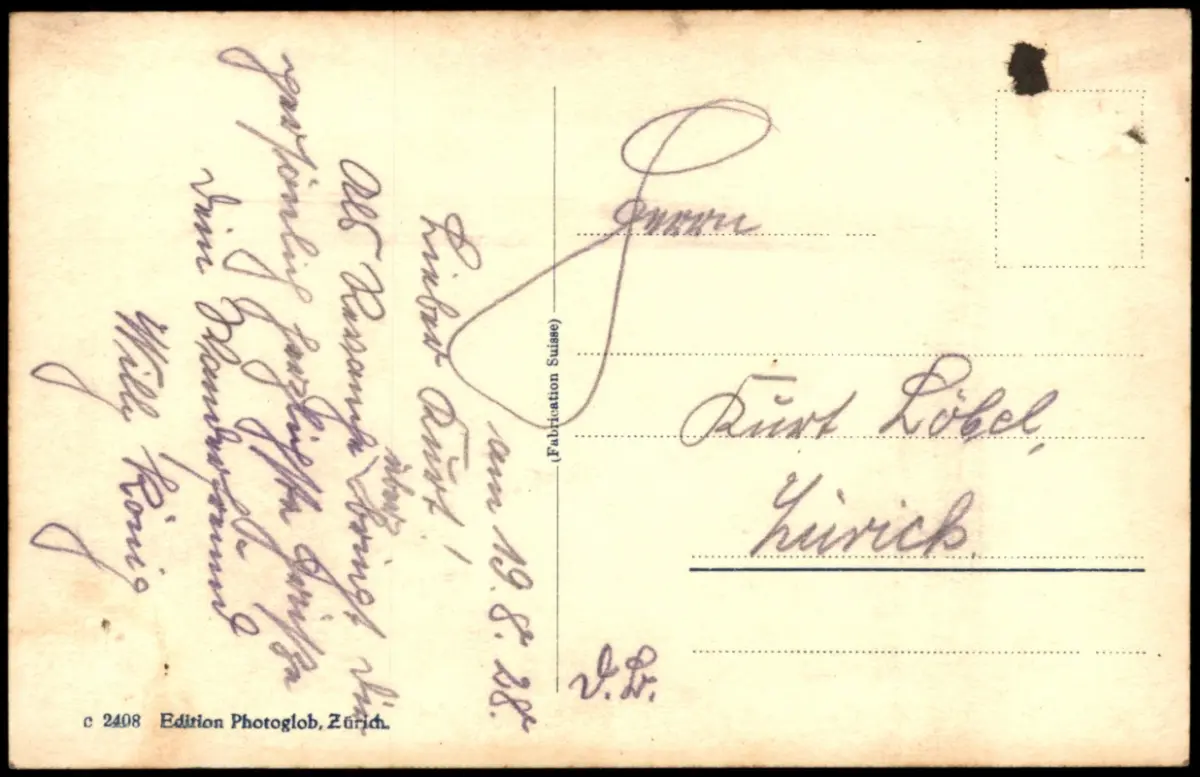 am 19.8.28.
Lieber Kurt!
über
Als bringt die
herzlichste Grüsse
Dein
Willy König
Herrn
Kurt Löbel,
Zürich
D.B.
(Fabrication Suisse)
c 2408 Edition Photoglob, Zürich.